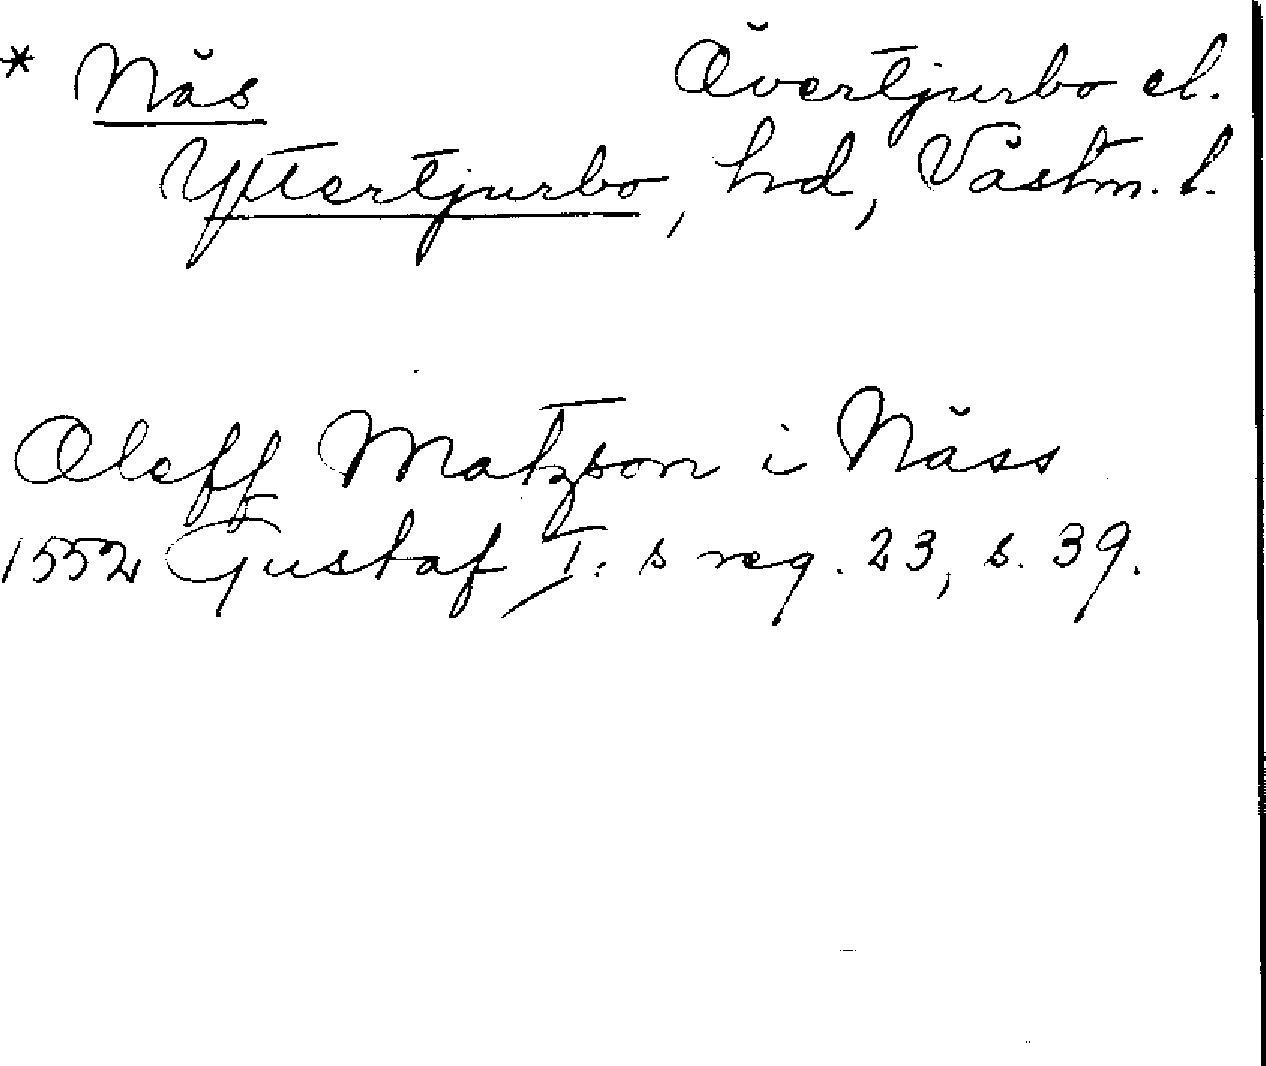 * Näs Övertjurbo el.
Yttertjurbo, hd, Västm. l.
Oleff Matzson i Näss
1552 Gustaf I:s reg. 23, s. 39.